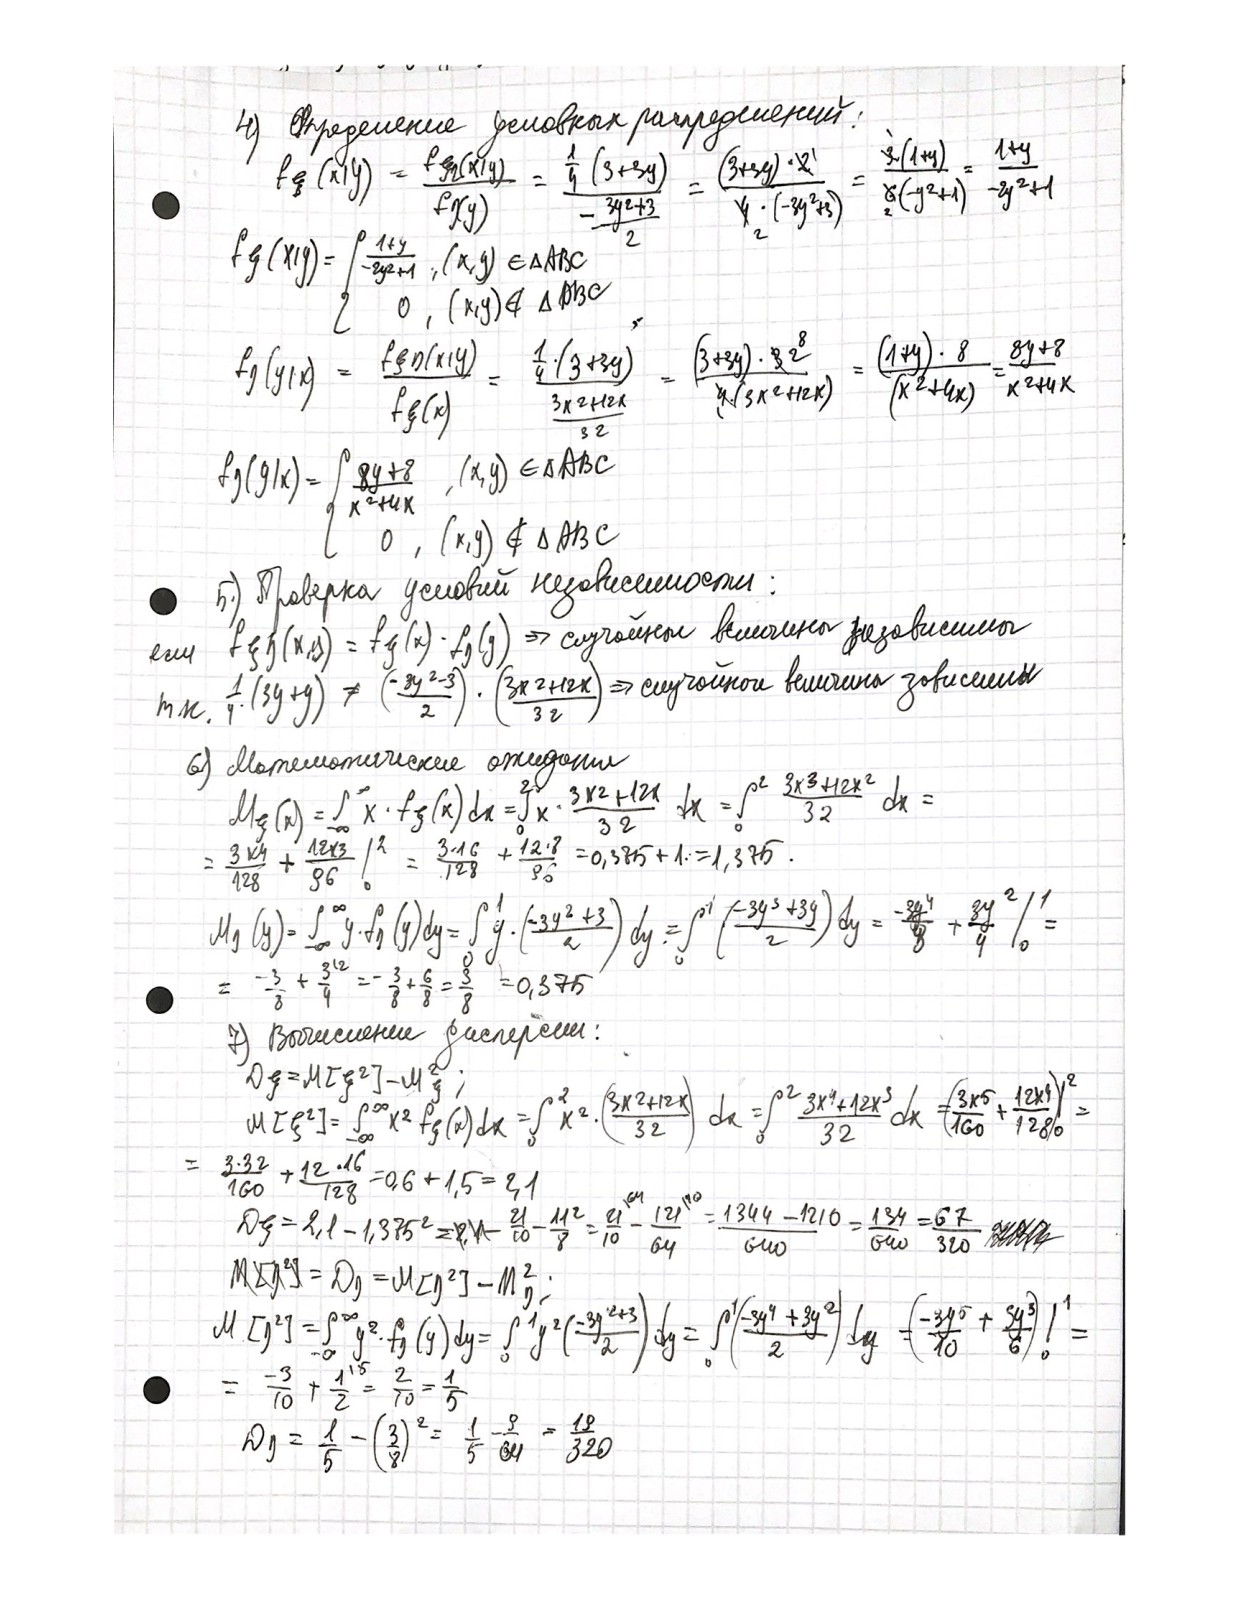 4) Определение условных распределений:
fξ(x|y) = fξη(x|y)/fη(y) = (1/4 (3+3y))/(-3y²+3/2) = ((3+3y)·2)/(4·(-3y²+3)) = 3(1+y)/6(-y²+1) = (1+y)/(-2y²+1)
fξ(x|y) = { (1+y)/(-2y²+1), (x,y) ∈ ΔABC
0, (x,y) ∉ ΔABC
fη(y|x) = fξη(x|y)/fξ(x) = (1/4·(3+3y))/((3x²+12x)/32) = ((3+3y)·32)/(4·(3x²+12x)) = ((1+y)·8)/(x²+4x) = (8y+8)/(x²+4x)
fη(y|x) = { (8y+8)/(x²+4x), (x,y) ∈ ΔABC
0, (x,y) ∉ ΔABC
5.) Проверка условий независимости:
если fξη(x,y) = fξ(x)·fη(y) ⇒ случайные величины независимы
т.к. 1/4·(3y+y) ≠ ((-3y²-3)/2)·((3x²+12x)/32) ⇒ случайной величины зависимы
6) Математические ожидания
Mξ(x) = ∫_{-∞}^{∞} x·fξ(x)dx = ∫_0^2 x·(3x²+12x)/32 dx = ∫_0^2 (3x³+12x²)/32 dx =
= 3x⁴/128 + 12x³/96 |_0^2 = 3·16/128 + 12·8/96 = 0,375+1 = 1,375.
Mη(y) = ∫_{-∞}^{∞} y·fη(y)dy = ∫_0^1 y·((-3y²+3)/2) dy = ∫_0^1 ((-3y³+3y)/2) dy = -3y⁴/8 + 3y²/4 |_0^1 =
= -3/8 + 3/4 = -3/8 + 6/8 = 3/8 = 0,375
7) Вычисление дисперсии:
Dξ = M[ξ²] - M²ξ;
M[ξ²] = ∫_{-∞}^{∞} x² fξ(x)dx = ∫_0^2 x²·((3x²+12x)/32) dx = ∫_0^2 (3x⁴+12x³)/32 dx = (3x⁵/160 + 12x⁴/128)|_0^2 =
= 3·32/160 + 12·16/128 = 0,6+1,5 = 2,1
Dξ = 2,1 - 1,375² = 21/10 - 11²/8 = 21/10 - 121/64 = (1344-1210)/640 = 134/640 = 67/320
M[η²] = Dη = M[η²] - M²η;
M[η²] = ∫_{-∞}^{∞} y²·fη(y)dy = ∫_0^1 y²((-3y²+3)/2) dy = ∫_0^1 ((-3y⁴+3y²)/2) dy = (-3y⁵/10 + 3y³/6)|_0^1 =
= -3/10 + 1/2 = 2/10 = 1/5
Dη = 1/5 - (3/8)² = 1/5 - 9/64 = 19/320